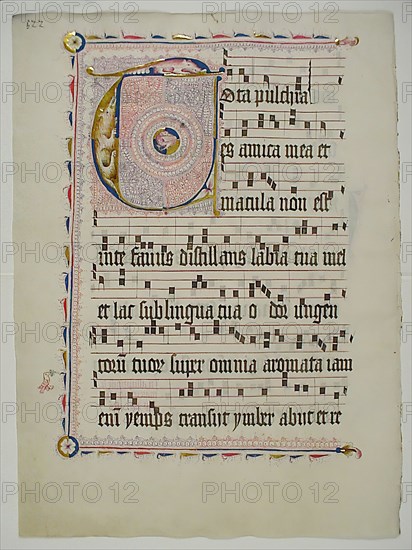 Tota pulchra
es amica mea et
macula non est
inte favus distillans labia tua mel
et lac sub lingua tua o dor ungen
torũ tuor super omnia aromata iam
eni yemps transijt ymber abijt et re
PHOTO 12